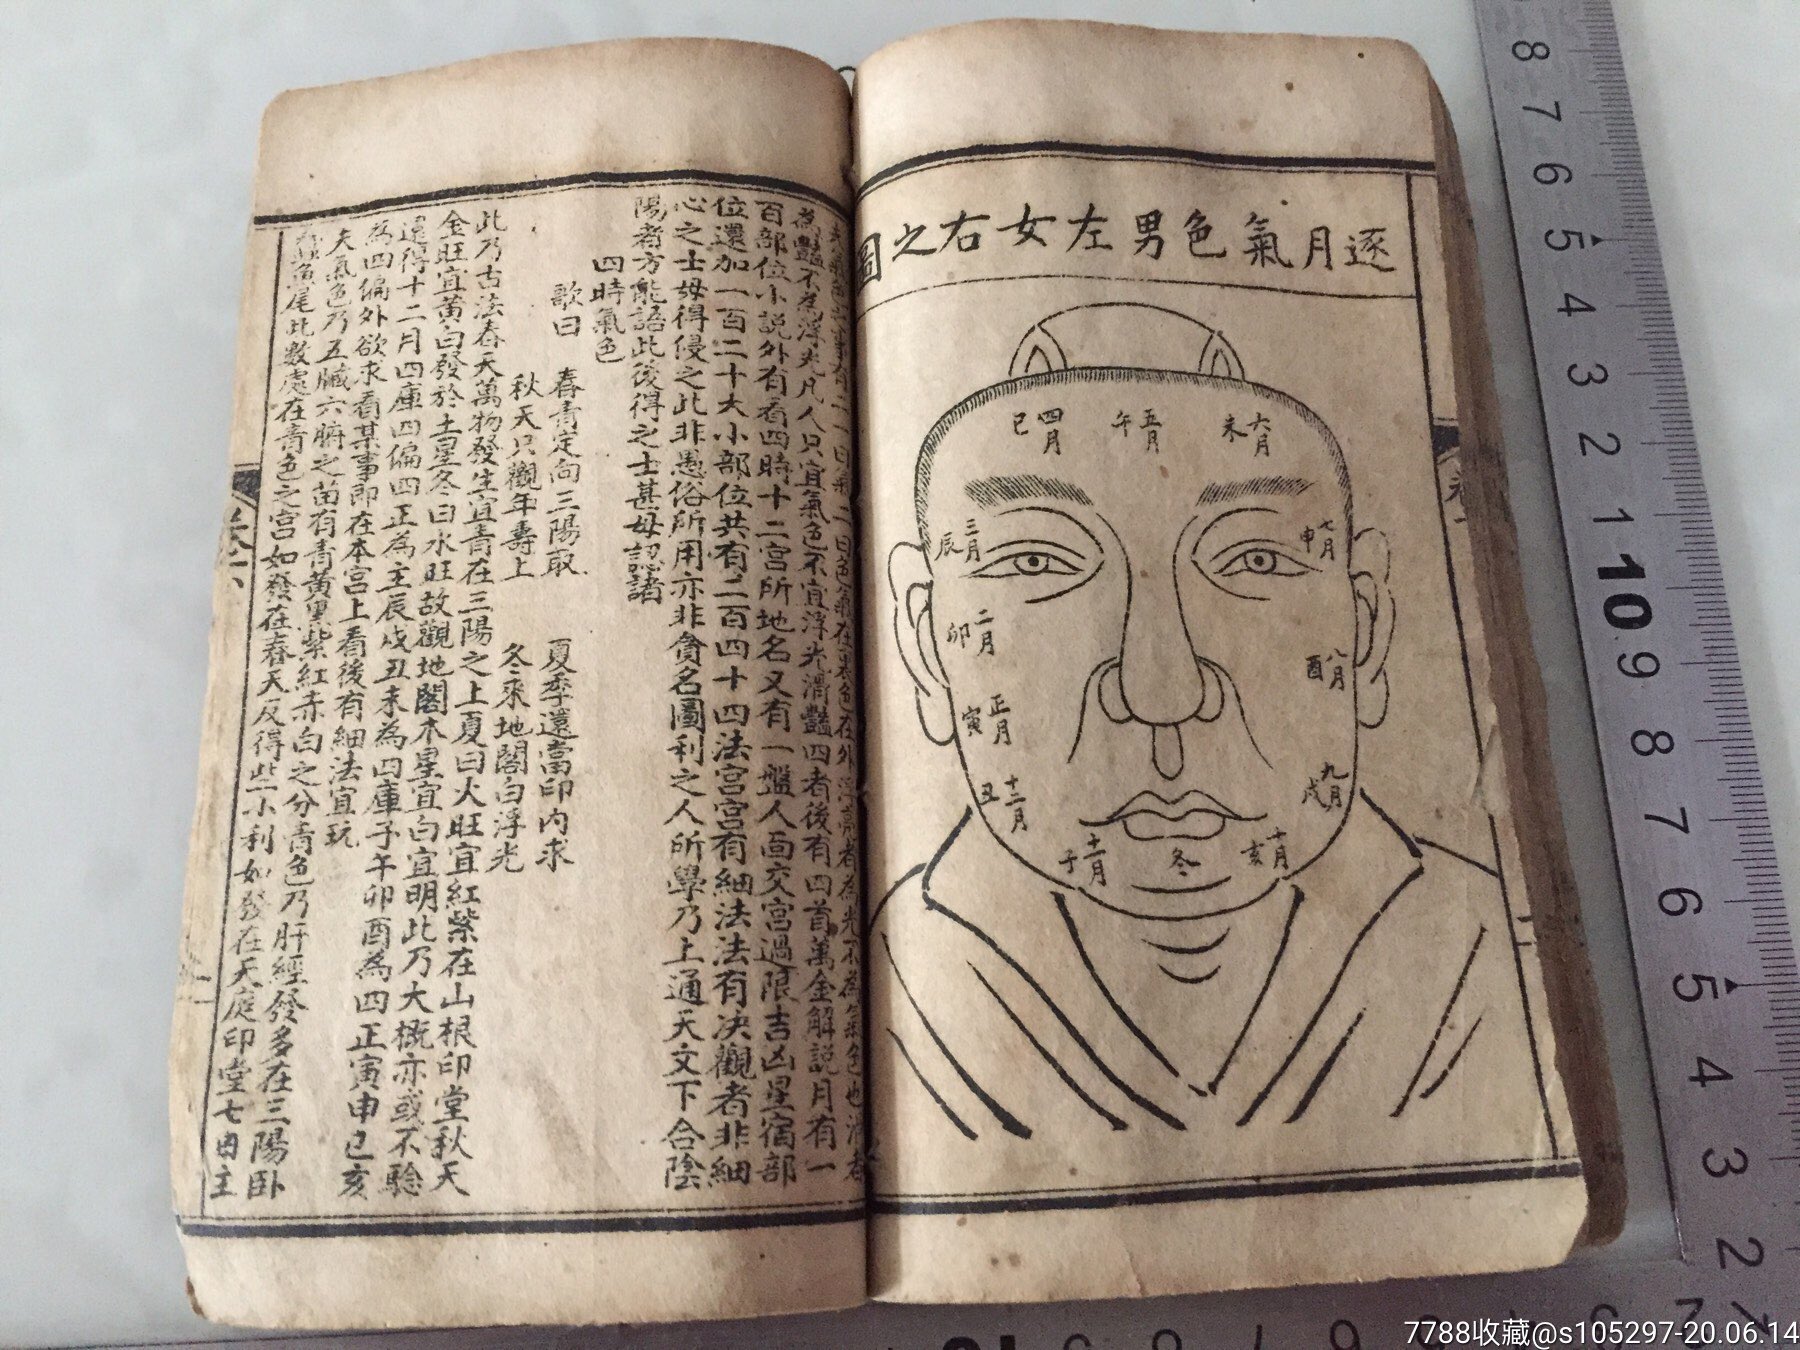 逐月氣色男左女右之圖
六月
未
五月
午
四月
巳
七月
申
三月
辰
八月
酉
二月
卯
九月
戌
正月
寅
十月
亥
冬
十一月
子
十二月
丑
為豔不為浮光凡人只宜氣色不宜浮光滑豔四者後有四首萬金解説月有一
百部位小説外有看四時十二宮所地名又有一盤人面交宮過限吉凶星宿部
位還加一百二十大小部位共有二百四十四法宮宮有細法法有决觀者非細
心之士毋得侵之此非愚俗所用亦非貪名圖利之人所學乃上通天文下合陰
陽者方能語此後得之士甚毋認諸
四時氣色
歌曰 春青定向三陽取 夏季還當印内求
秋天只觀年壽上 冬來地閣白浮光
此乃古法春天萬物發生宜青在三陽之上夏曰火旺宜紅紫在山根印堂秋天
金旺宜黄白發於土星冬曰水旺故觀地閣木星宜白宜明此乃大概亦或不驗
還得十二月四庫四偏四正為主辰戌丑未為四庫子午卯酉為四正寅申巳亥
為四偏外欲求看某事即在本宮上看後有細法宜玩
夫氣色乃五臟六腑之苗有青黄黑紫紅赤白之分青色乃肝經發多在三陽卧
蠶魚尾此數處在青色之宮如發在春天反得些小利如發在天庭印堂七日主
8 7 6 5 4 3 2 1 10 9 8 7 6 5 4 3 2
7788收藏@s105297-20.06.14